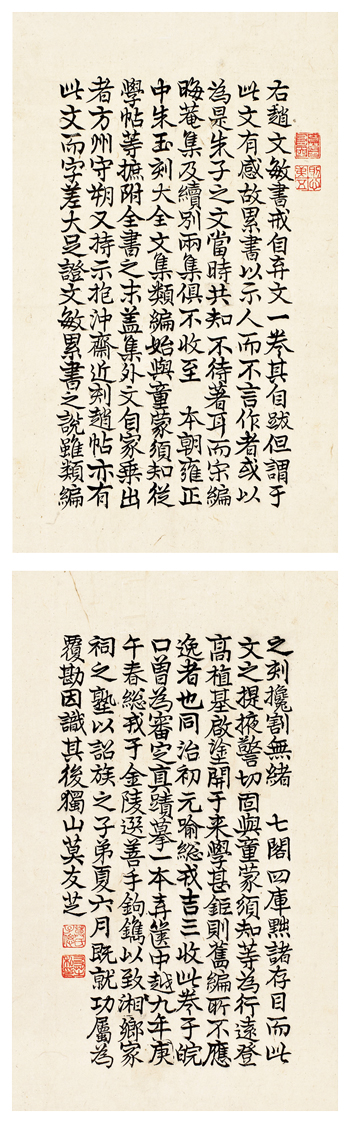 右趙文敏書戒自弃文一卷其自跋但謂于
此文有感故累書以示人而不言作者或以
為是朱子之文當時共知不待著耳而宋編
晦菴集及續別兩集俱不收至 本朝雍正
中朱玉刻大全文集類編始與童蒙須知從
學帖等摭附全書之末盖集外文自家乗出
者方州守朔又持示抱沖齋近刻趙帖亦有
此文而字差大足證文敏累書之說雖類編
之刻攙割無緒 七閣四庫黜諸存目而此
文之提掖警切固與童蒙須知等為行遠登
高植基啟塗開于来學甚鉅則舊編所不應
逸者也同治初元喻總戎吉三收此卷于皖
口曾為審定真蹟摹一本弆篋中越九年庚
午春總戎于金陵選善手鉤鐫以致湘鄉家
祠之塾以詔族之子弟夏六月既就功屬為
覆勘因識其後獨山莫友芝